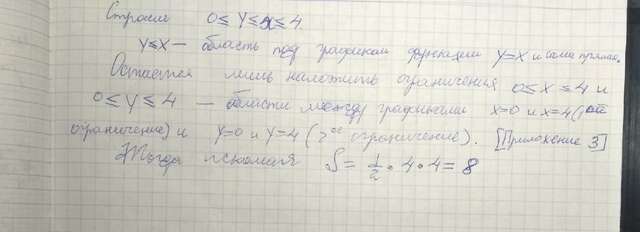 Строим 0≤y≤x≤4
y≤x — область под графиком функции y=x и сама прямая.
Остается лишь наложить ограничения 0≤x≤4 и
0≤y≤4 — области между графиками x=0 и x=4 (
ограничение) и y=0 и y=4 (2ое ограничение). [Приложение 3]
Тогда искомая S = 1/2 · 4 · 4 = 8